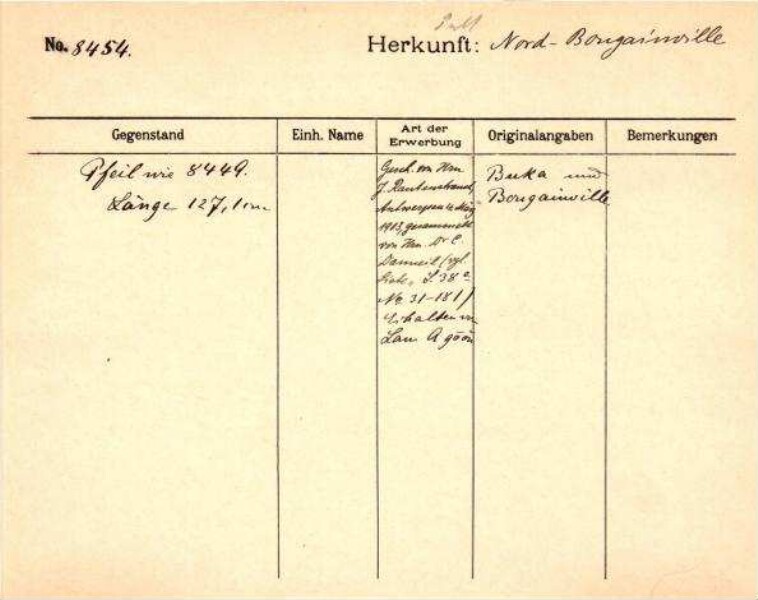 No. 8454.
Herkunft: Nord-Bougainville
Gegenstand
Einh. Name
Art der Erwerbung
Originalangaben
Bemerkungen
Pfeil wie 8449.
Länge 127,1 cm
Gesch. von Hrn
J. Rautenstrauch,
Antwerpen 4. März
1913, gesammelt
von Hrn. Dr. C.
(vgl.
S. 38a
No. 31-181)
Erhalten von
Buka und
Bougainville